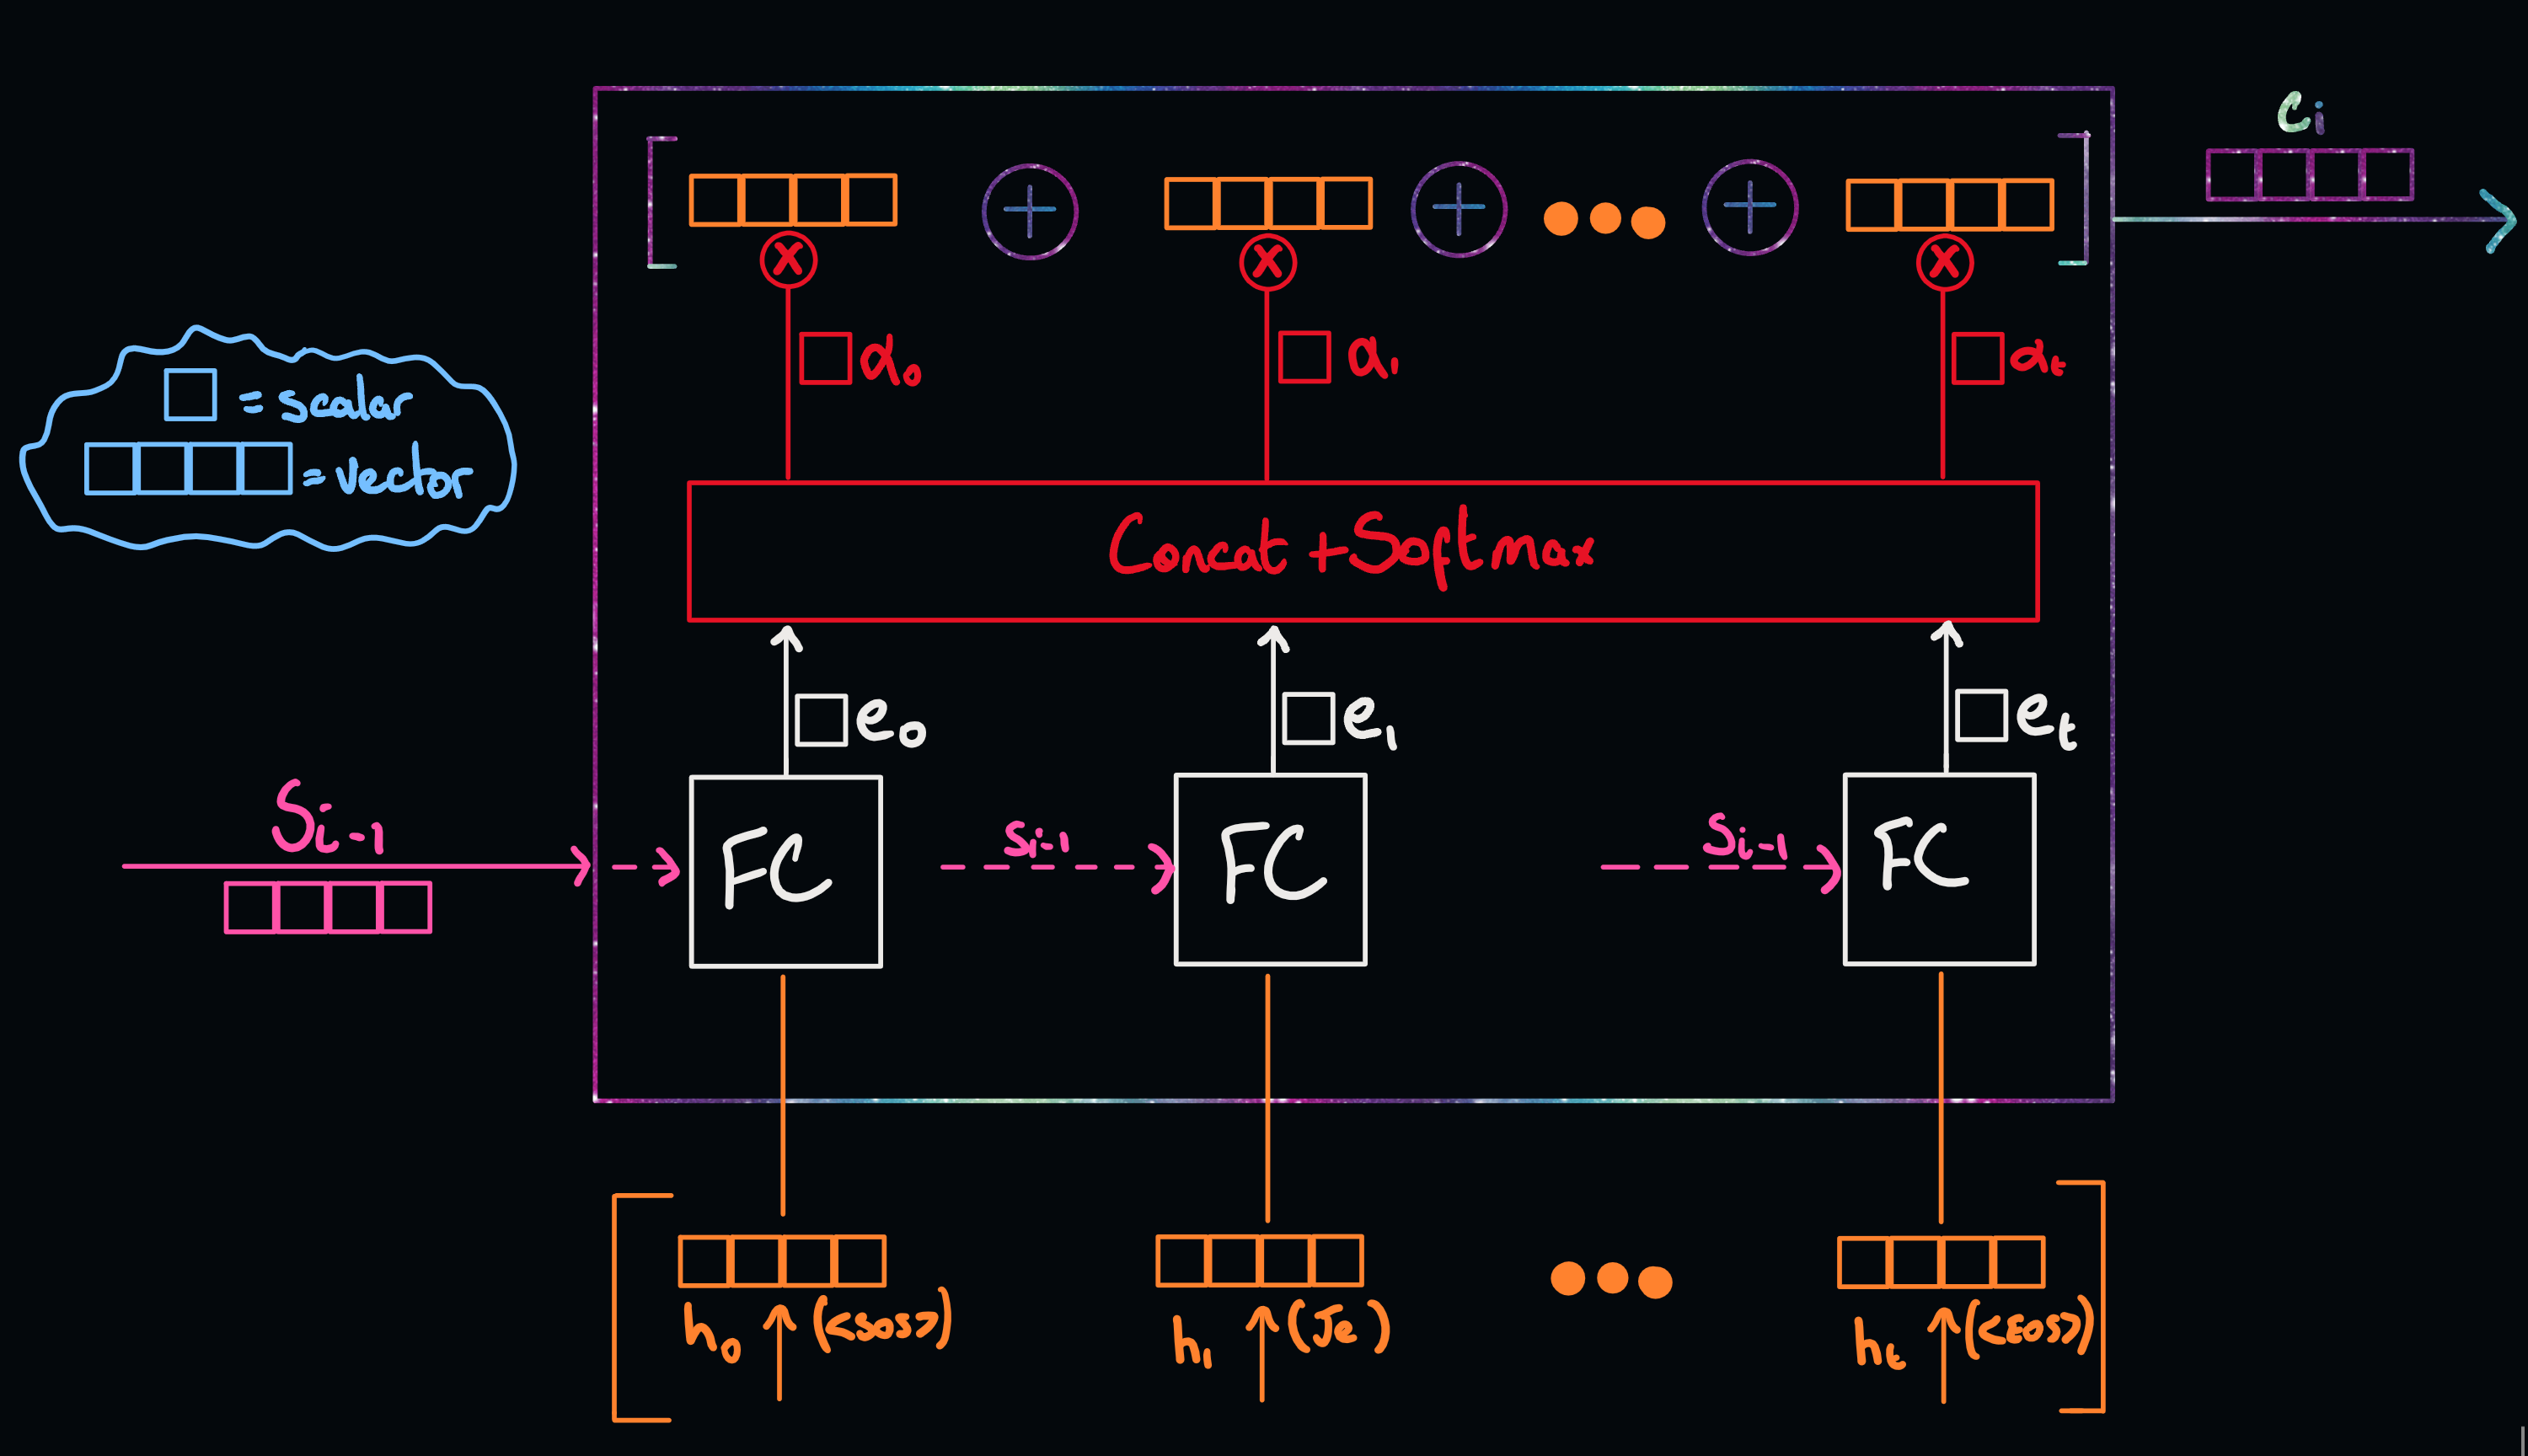 Ci
α0
α1
αt
= scalar
= vector
Concat + Softmax
e0
e1
et
Si-1
FC
Si-1
FC
Si-1
FC
h0 (<sos>)
h1 (Je)
ht (<EOS>)